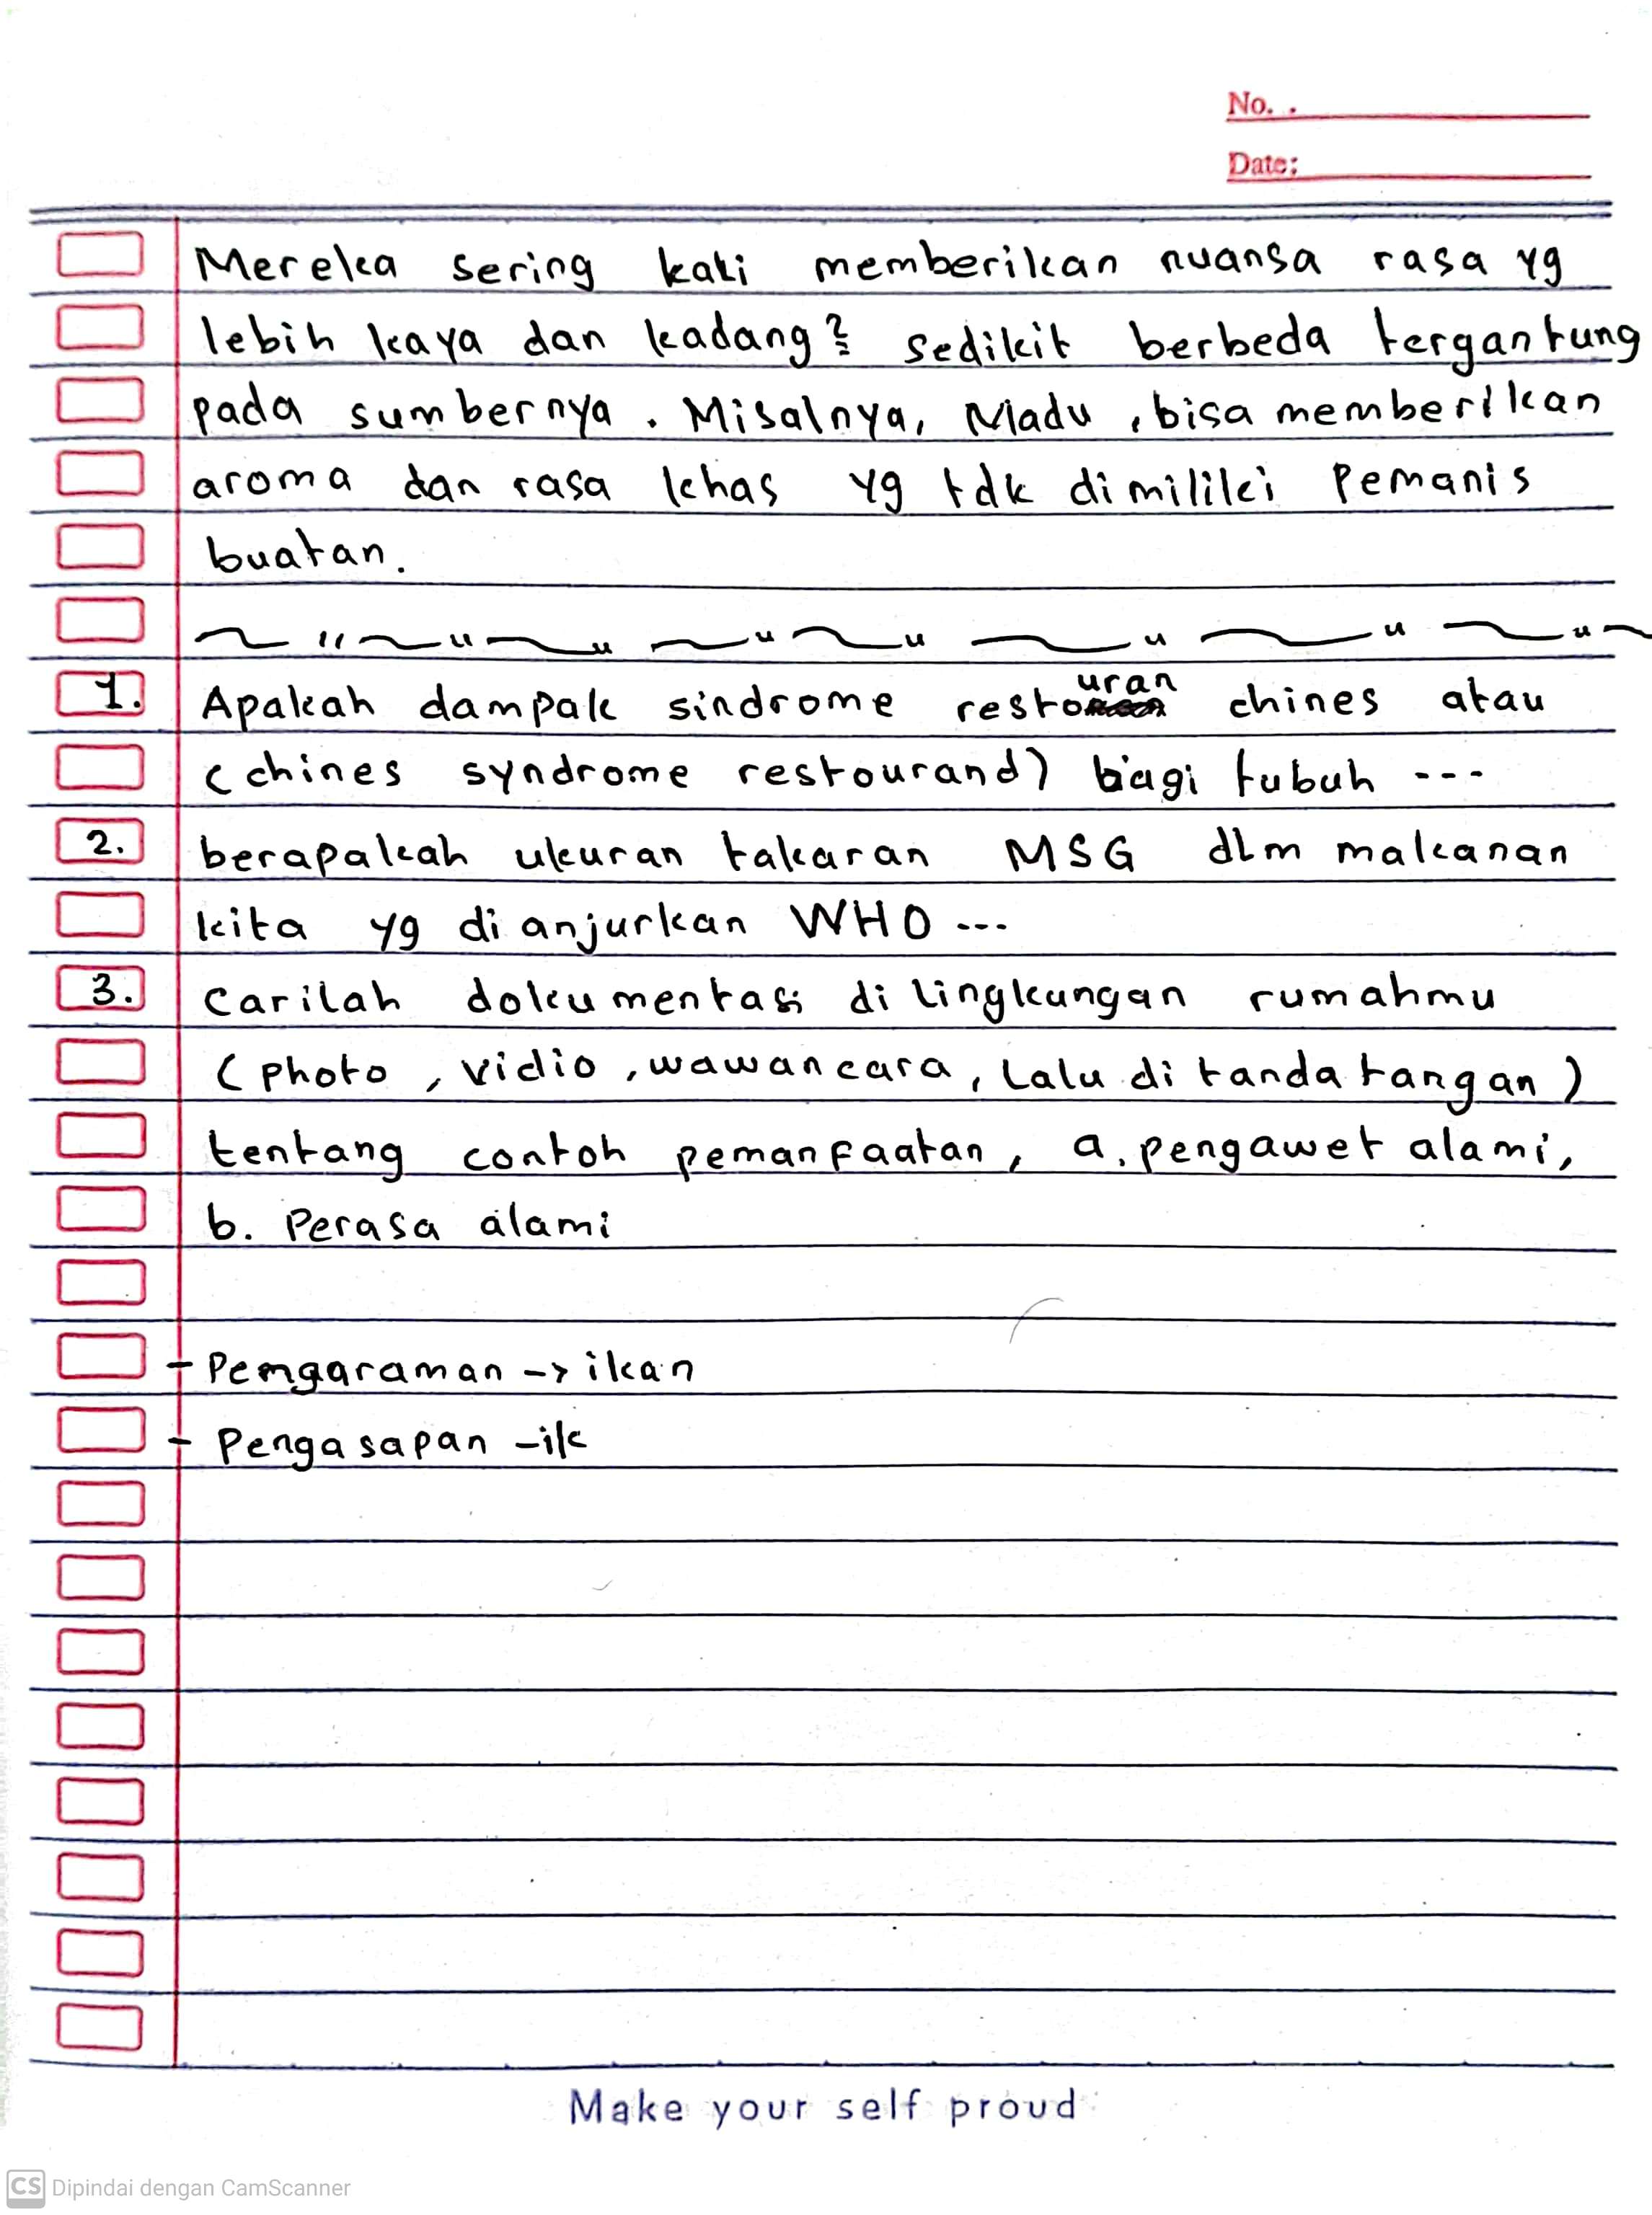 No. .
Date:
Mereka sering kali memberikan nuansa rasa yg
lebih kaya dan kadang2 sedikit berbeda tergantung
pada sumbernya. Misalnya, Madu, bisa memberikan
aroma dan rasa khas yg tdk dimiliki Pemanis
buatan.
1. Apakah dampak sindrome restouran chines atau
(chines syndrome restourand) bagi tubuh ---
2. berapakah ukuran takaran MSG dlm makanan
kita yg di anjurkan WHO ---
3. Carilah dokumentasi di lingkungan rumahmu
(photo, vidio, wawancara, Lalu di tanda tangan)
tentang contoh pemanfaatan, a. pengawet alami,
b. Perasa alami
- Pemgaraman -> ikan
- Pengasapan - ik
Make your self proud
CS Dipindai dengan CamScanner